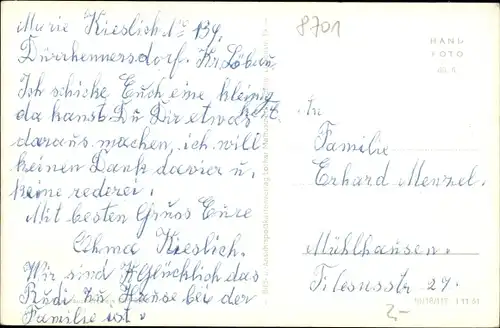 Marie Kieslich No 134.
Dürrhennersdorf. Kr. Löbau.
Ich schicke Euch eine kleinig
keit.
da kanst Du Dir etwas
daraus machen, ich will
keinen Dank davier u.
keine rederei.
Mit besten Gruss Eure
Ohma Kieslich.
Wir sind Glücklich das
Rudi zu Hause bei der
Familie ist.
8701
HANL
FOTO
In
Familie
Erhard Menzel.
Mühlhausen.
Tilesusstr 27.
2,-